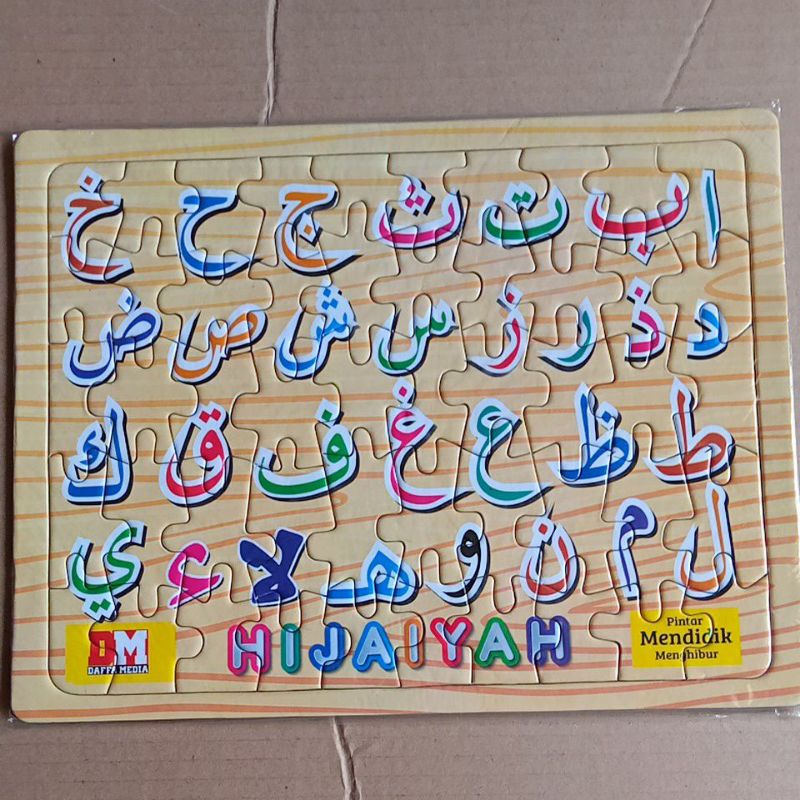 ا ب ت ث ج ح خ
د ذ ر ز س ش ص ض
ط ظ ع غ ف ق ك
ل م ن و هـ لا ء ي
HIJAIYAH
DM
DAFFA MEDIA
Pintar
Mendidik
Menghibur